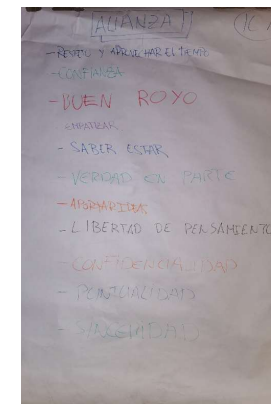 ALIANZA
- RESPETO Y APROVECHAR EL TIEMPO
- CONFIANZA
- BUEN ROYO
EMPATIZAR
- SABER ESTAR
- VERDAD EN PARTE
- LIBERTAD DE PENSAMIENTO
- CONFIDENCIALIDAD
- PUNTUALIDAD
- SINCERIDAD